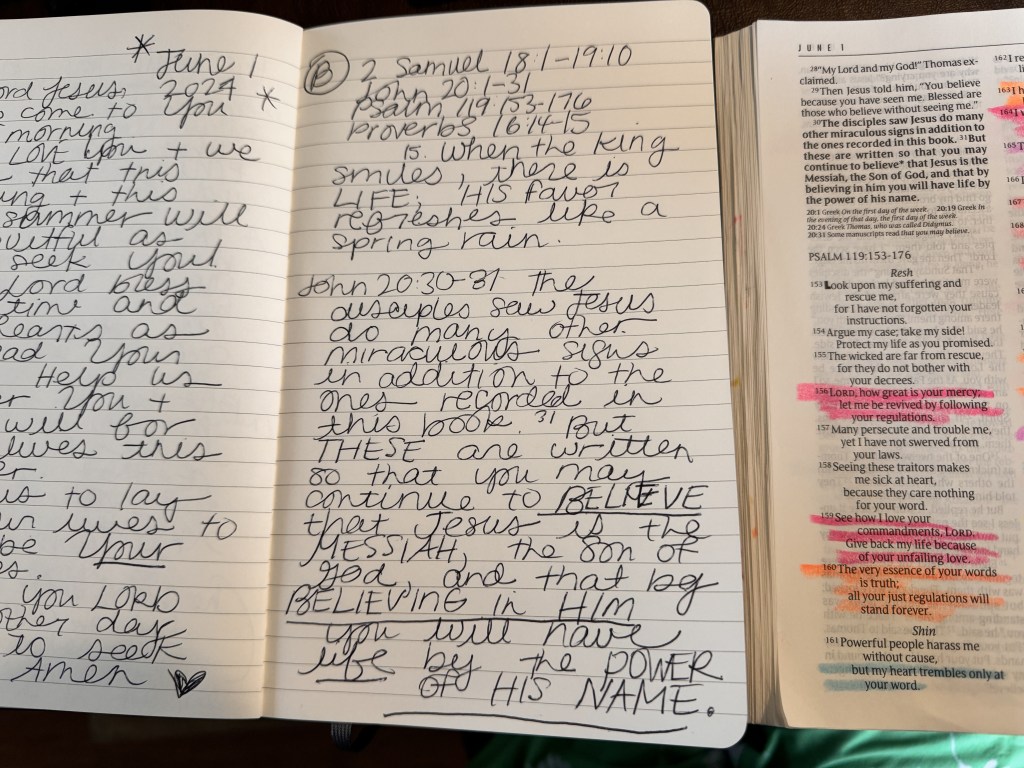 * June 1
ord Jesus, 2024 *
come to You
morning
LOVE You + we
that this
ung + this
summer will
uitful as
seek You!
Lord bless
time and
earts as
ead Your
Help us
er You +
will for
lives this
er.
us to lay
ur lives to
be Your
s.
You LORD
other day
to seek
Amen ♥
B 2 Samuel 18:1-19:10
John 20:1-31
Psalm 119:153-176
Proverbs 16:14-15
15. When the King
smiles, there is
LIFE; HIS favor
refreshes like a
spring rain.
John 20:30-31 The
disciples saw Jesus
do many other
miraculous signs
in addition to the
ones recorded in
this book. 31 But
THESE are written
so that you may
continue to BELIEVE
that Jesus is the
MESSIAH, the Son of
God, and that by
BELIEVING in HIM
you will have
life by the POWER
OF HIS NAME.
JUNE 1
28"My Lord and my God!" Thomas ex-
claimed.
29Then Jesus told him, "You believe
because you have seen me. Blessed are
those who believe without seeing me."
30The disciples saw Jesus do many
other miraculous signs in addition to
the ones recorded in this book. 31But
these are written so that you may
continue to believe* that Jesus is the
Messiah, the Son of God, and that by
believing in him you will have life by
the power of his name.
20:1 Greek On the first day of the week. 20:19 Greek In
the evening of that day, the first day of the week.
20:24 Greek Thomas, who was called Didymus.
20:31 Some manuscripts read that you may believe.
PSALM 119:153-176
Resh
153Look upon my suffering and
rescue me,
for I have not forgotten your
instructions.
154Argue my case; take my side!
Protect my life as you promised.
155The wicked are far from rescue,
for they do not bother with
your decrees.
156LORD, how great is your mercy;
let me be revived by following
your regulations.
157Many persecute and trouble me,
yet I have not swerved from
your laws.
158Seeing these traitors makes
me sick at heart,
because they care nothing
for your word.
159See how I love your
commandments, LORD.
Give back my life because
of your unfailing love.
160The very essence of your words
is truth;
all your just regulations will
stand forever.
Shin
161Powerful people harass me
without cause,
but my heart trembles only at
your word.
162I re
163I h
164I
165T
166I
167
168